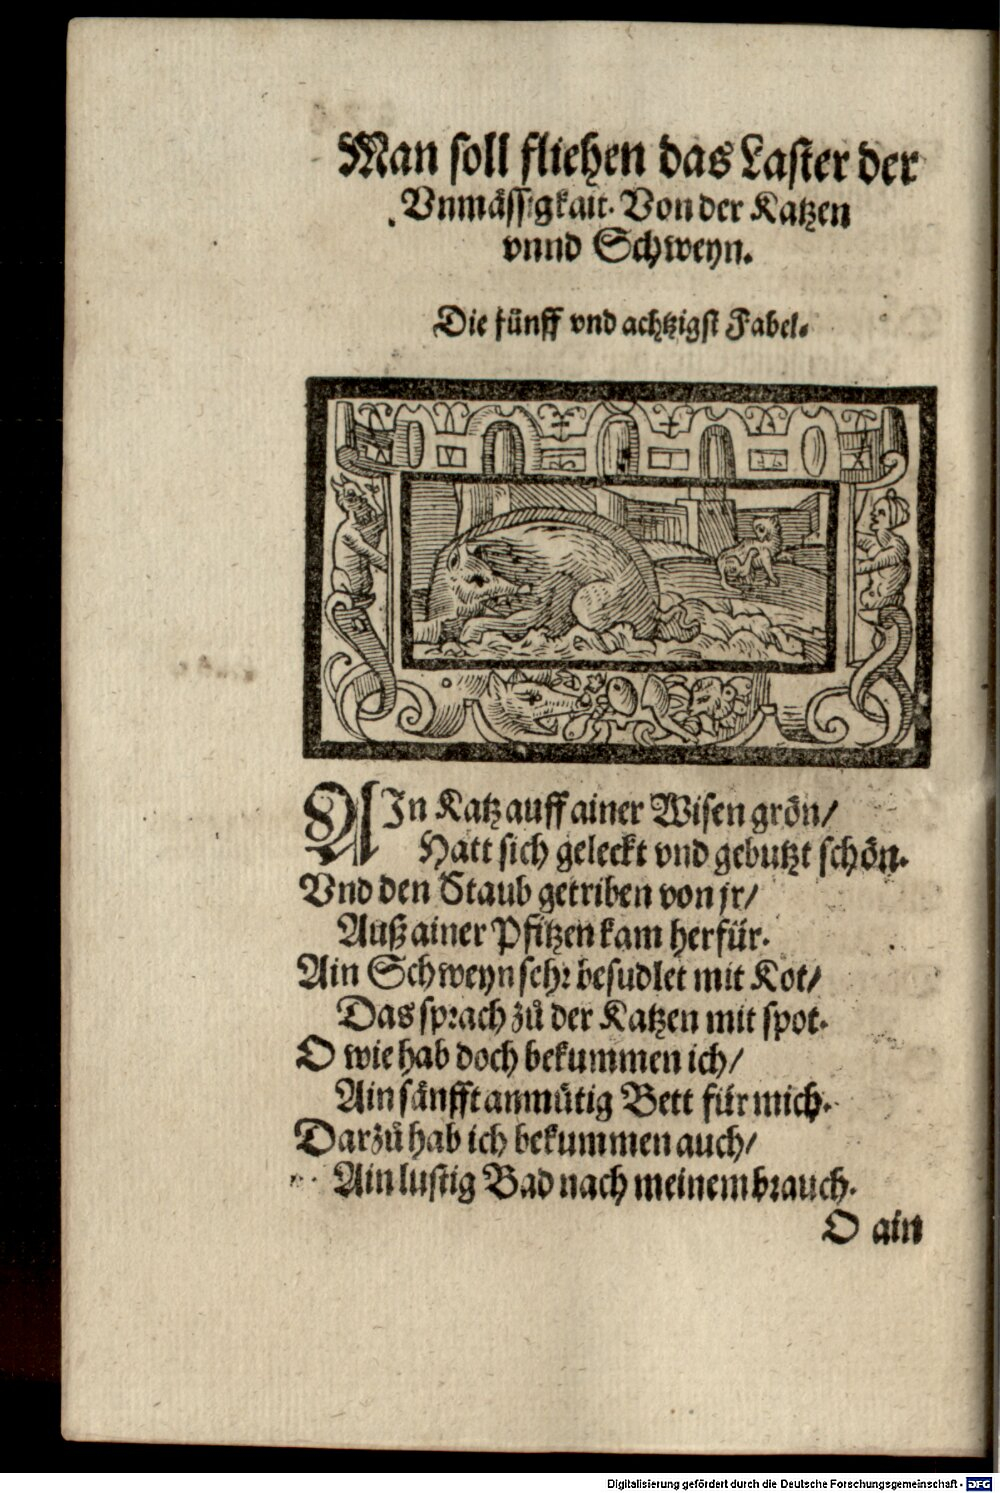 Man soll fliehen das Laster der
Vnmässigkait. Von der Katzen
vnnd Schweyn.
Die fünff vnd achtzigst Fabel.
AIn Katz auff ainer Wisen grön/
Hatt sich geleckt vnd gebutzt schön.
Vnd den Staub getriben von jr/
Auß ainer Pfitzen kam herfür.
Ain Schweyn sehr besudlet mit Kot/
Das sprach zů der Katzen mit spot.
O wie hab doch bekummen ich/
Ain sänfft anmütig Bett für mich.
Darzů hab ich bekummen auch/
Ain lustig Bad nach meinem brauch.
O ain
Digitalisierung gefördert durch die Deutsche Forschungsgemeinschaft - DFG